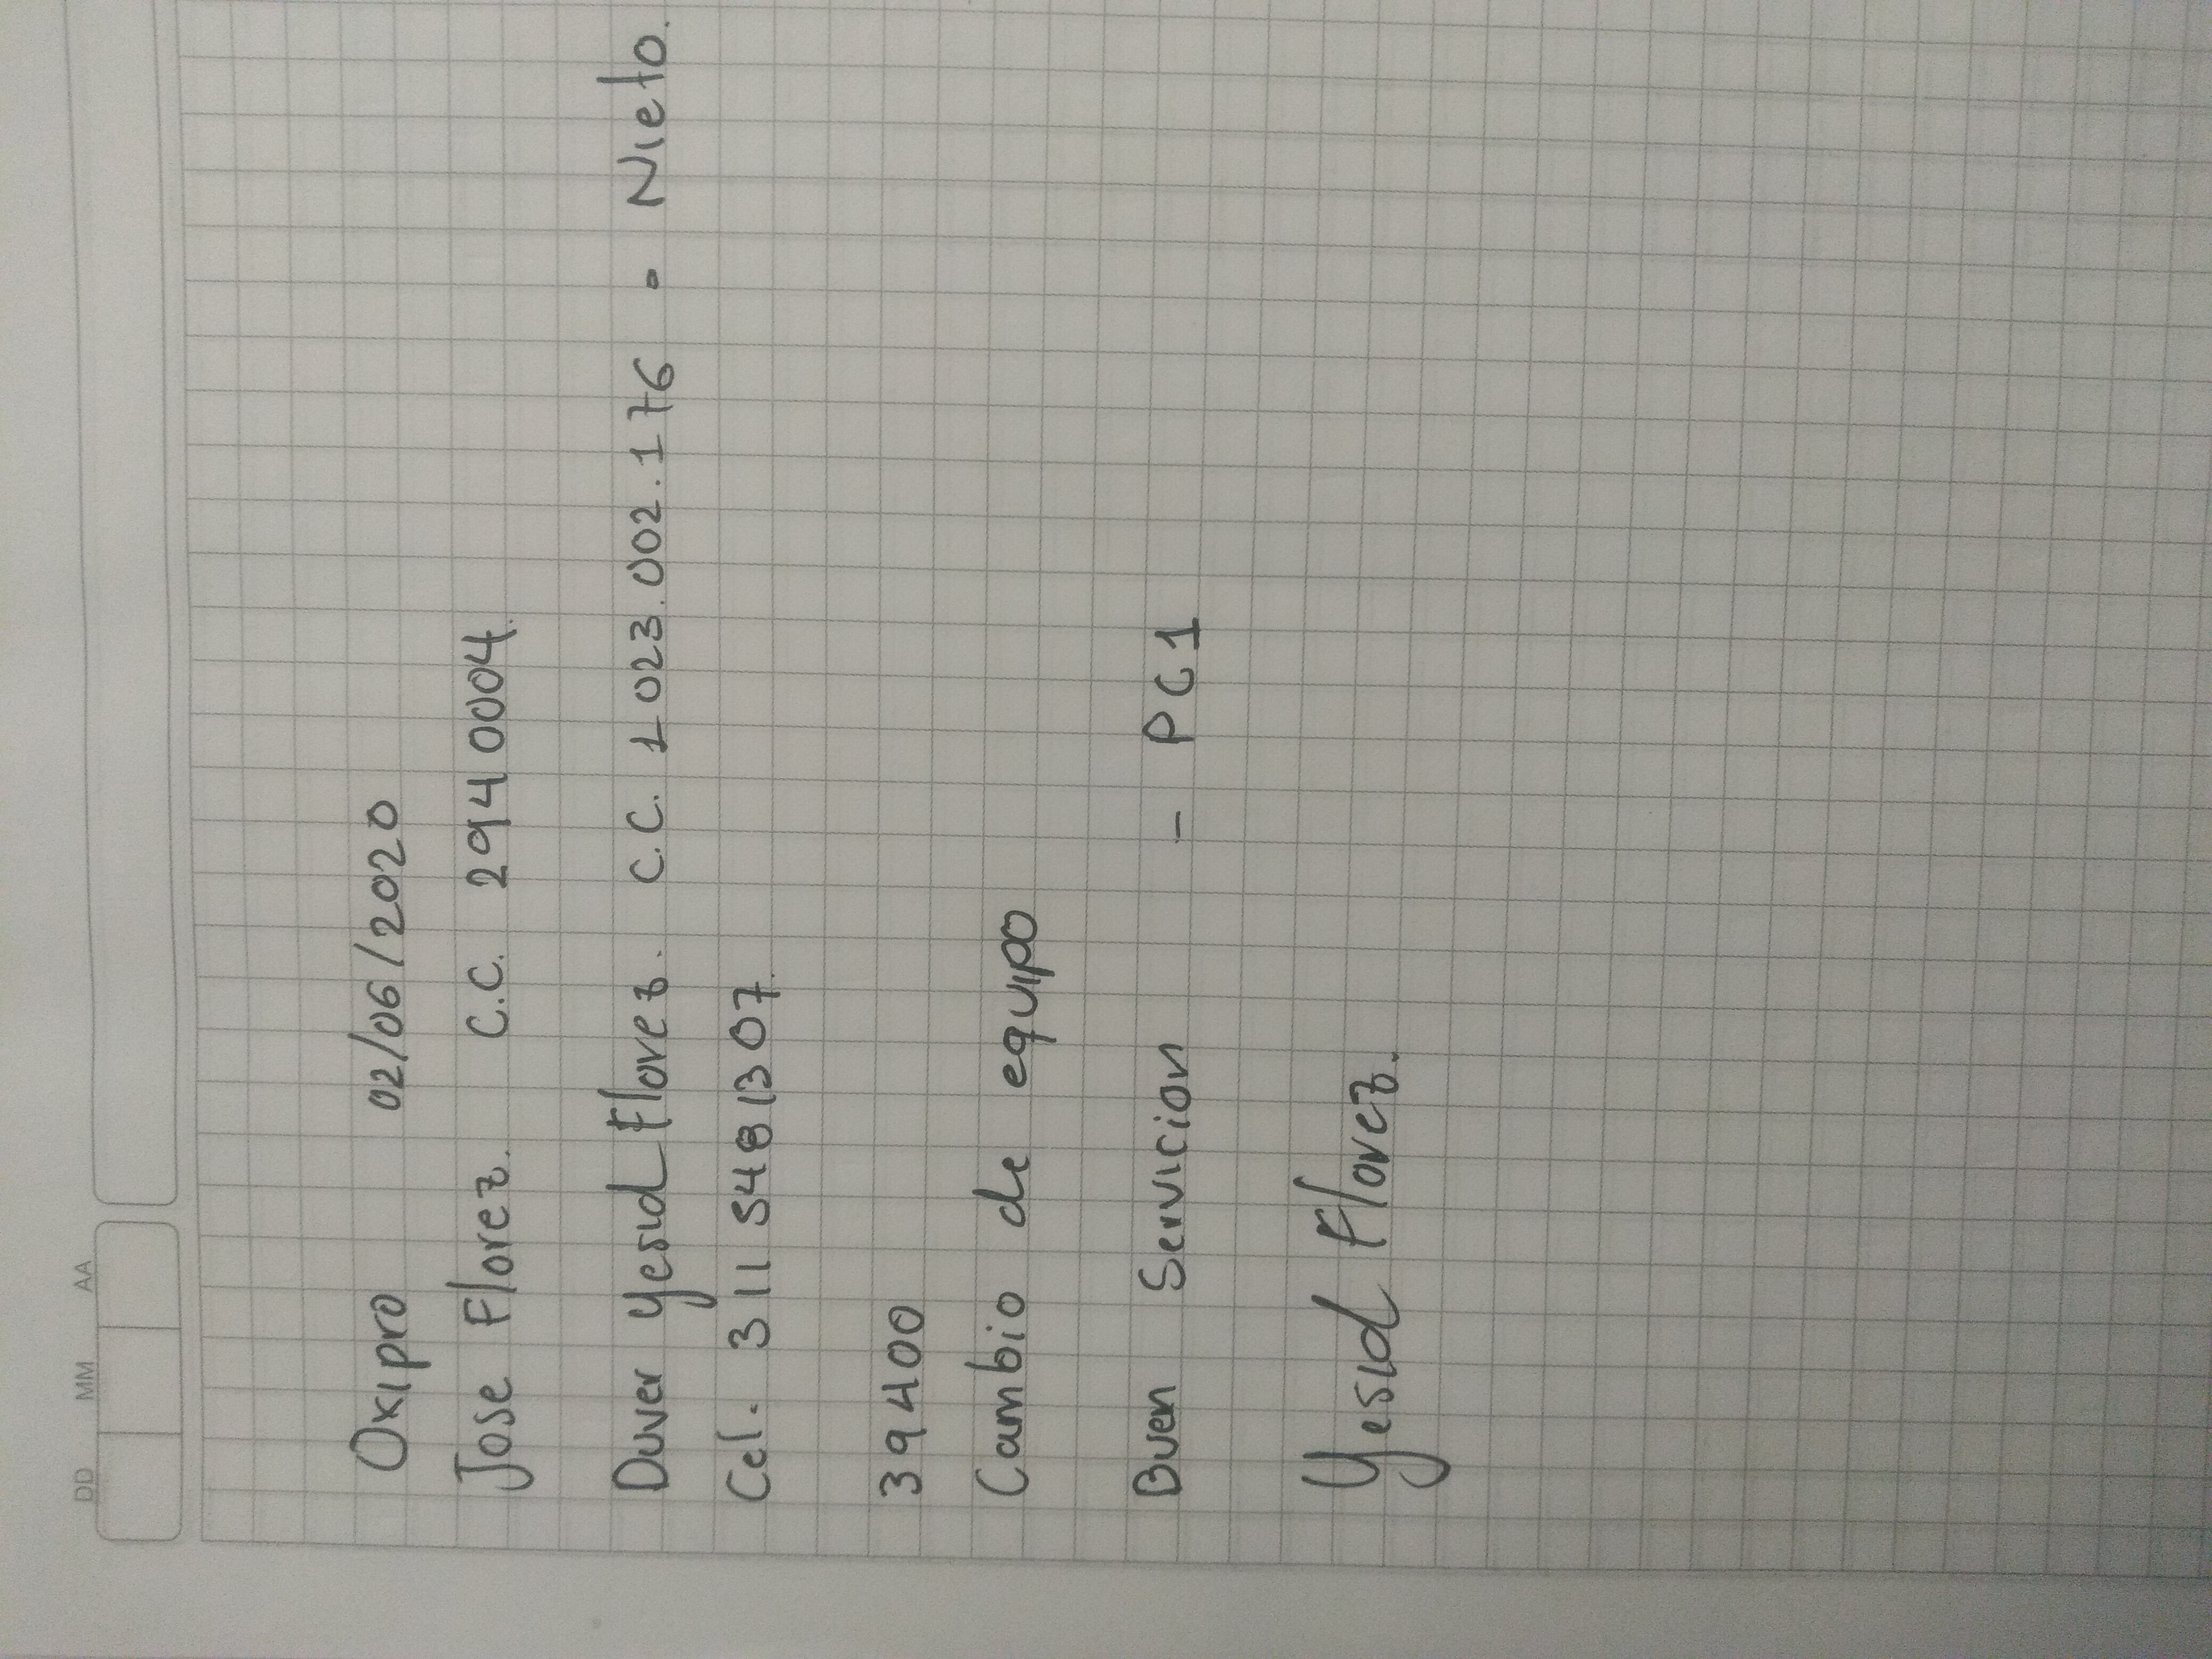 DD MM AA
Oxipro 02/06/2020
Jose Florez. C.C. 2940004.
Duver Yesid Florez. C.C. 1023.002.176 - Nieto.
Cel. 311 5481307.
39400
Cambio de equipo
Buen Servicion - PC1
Yesid Florez.